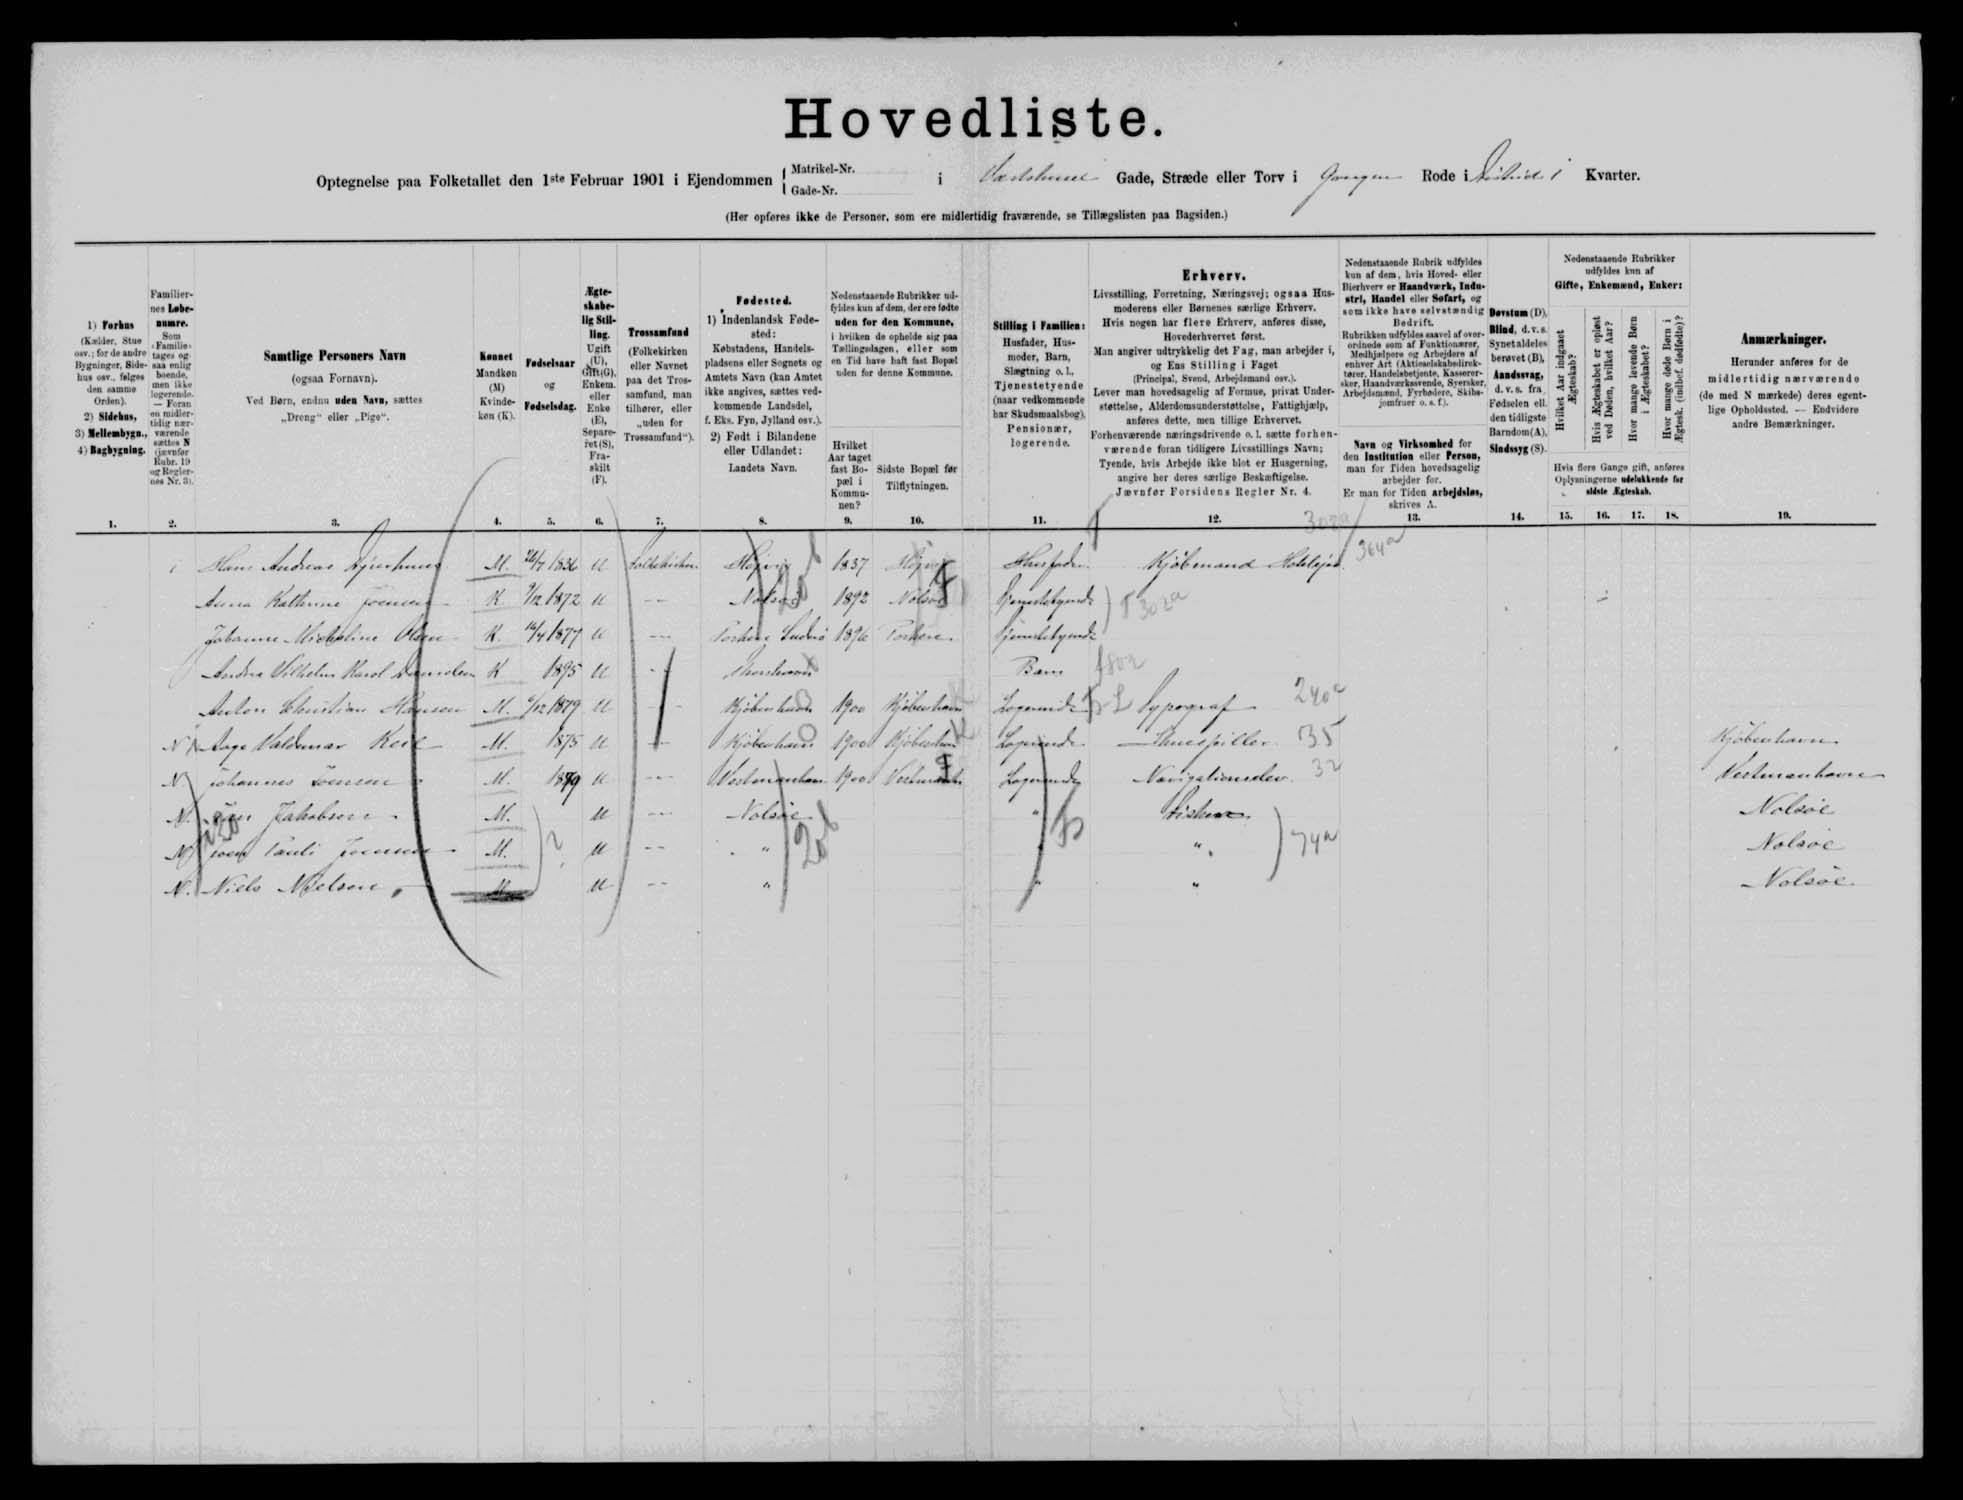 Hovedliste.
Optegnelse paa Folketallet den 1ste Februar 1901 i Ejendommen { Matrikel-Nr. Gade-Nr. i Gade, Stræde eller Torv i Rode i Kvarter.
(Her opføres ikke de Personer, som ere midlertidig fraværende, se Tillægslisten paa Bagsiden.)
1) Forhus (Kælder, Stue osv.; for de andre Bygninger, Sidehus osv., følges den samme Orden). 2) Sidehus, 3) Mellembygn., 4) Bagbygning.
Familiernes Løbenumre. Som »Familie« tages ogsaa enlig boende, men ikke logerende. — Foran en midlertidig nærværende sættes N (jævnfør Rubr. 19 og Reglernes Nr. 3).
Samtlige Personers Navn (ogsaa Fornavn). Ved Børn, endnu uden Navn, sættes „Dreng“ eller „Pige“.
Kønnet Mandkøn (M) Kvindekøn (K).
Fødselsaar og Fødselsdag.
Ægteskabelig Stilling. Ugift (U), Gift (G), Enkem. eller Enke (E), Separeret (S), Fraskilt (F).
Trossamfund (Folkekirken eller Navnet paa det Trossamfund, man tilhører, eller „uden for Trossamfund“).
Fødested. 1) Indenlandsk Fødested: Købstadens, Handelspladsens eller Sognets og Amtets Navn (kan Amtet ikke angives, sættes vedkommende Landsdel, f. Eks. Fyn, Jylland osv.). 2) Født i Bilandene eller Udlandet: Landets Navn.
Nedenstaaende Rubrikker udfyldes kun af dem, der ere fødte uden for den Kommune, i hvilken de opholde sig paa Tællingsdagen, eller som en Tid have haft fast Bopæl uden for denne Kommune.
Hvilket Aar taget fast Bopæl i Kommunen?
Sidste Bopæl før Tilflytningen.
Stilling i Familien: Husfader, Husmoder, Barn, Slægtning o. l., Tjenestetyende (naar vedkommende har Skudsmaalsbog), Pensionær, logerende.
Erhverv. Livsstilling, Forretning, Næringsvej; ogsaa Husmoderens eller Børnenes særlige Erhverv. Hvis nogen har flere Erhverv, anføres disse, Hovederhvervet først. Man angiver udtrykkelig det Fag, man arbejder i, og Ens Stilling i Faget (Principal, Svend, Arbejdsmand osv.). Lever man hovedsagelig af Formue, privat Understøttelse, Alderdomsunderstøttelse, Fattighjælp, anføres dette, men tillige Erhvervet. Forhenværende næringsdrivende o. l. sætte forhenværende foran tidligere Livsstillings Navn; Tyende, hvis Arbejde ikke blot er Husgerning, angive her deres særlige Beskæftigelse. Jævnfør Forsidens Regler Nr. 4.
Nedenstaaende Rubrik udfyldes kun af dem, hvis Hoved- eller Bierhverv er Haandværk, Industri, Handel eller Søfart, og som ikke have selvstændig Bedrift. Rubrikken udfyldes saavel af overordnede som af Funktionærer, Medhjælpere og Arbejdere af enhver Art (Aktieselskabsdirektører, Handelsbetjente, Kasserersker, Haandværkssvende, Syersker, Arbejdsmænd, Fyrbødere, Skibsjomfruer o. s. f.).
Navn og Virksomhed for den Institution eller Person, man for Tiden hovedsagelig arbejder for. Er man for Tiden arbejdsløs, skrives A.
Døvstum (D), Blind, d. v. s. Synet aldeles berøvet (B), Aandssvag, d. v. s. fra Fødselen ell. den tidligste Barndom (A), Sindssyg (S).
Nedenstaaende Rubrikker udfyldes kun af Gifte, Enkemænd, Enker:
Hvilket Aar indgaaet Ægteskab?
Hvis Ægteskabet er opløst ved Døden, hvilket Aar?
Hvor mange levende Børn i Ægteskabet?
Hvor mange døde Børn i Ægtesk. (indbef. dødfødte)?
Hvis flere Gange gift, anføres Oplysningerne udelukkende for sidste Ægteskab.
Anmærkninger. Herunder anføres for de midlertidig nærværende (de med N mærkede) deres egentlige Opholdssted. — Endvidere andre Bemærkninger.
1. 2. 3. 4. 5. 6. 7. 8. 9. 10. 11. 12. 13. 14. 15. 16. 17. 18. 19.
Hans Andreas M. 1836 U Folkekirken 1837 Husfader Kjöbmand 302a 364a
Anna Kathrine Joensen K 9/12 1872 U — Nolsoe 1892 Nolsoe Tjenestetyende 302a
Johanne Micheline Olsen K. 1877 U — 1896 Tjenestetyende
Andrea Vilhelm Karol Danielsen K 1895 U Thorshavn Barn
Anton Christian Hansen M. 1879 U — Kjöbenhavn 1900 Kjöbenhavn Logerende Typograf 240a
N Aage Valdemar M. 1875 U — Kjöbenhavn 1900 Kjöbenhavn Logerende Skuespiller 35 Kjöbenhavn
N. Johannes Joensen M. 1879 U — Vestmanhavn 1900 Logerende Navigationselev 32 Vestmanhavn
N. Jakobsen M. U — Nolsöe " Fisker Nolsöe
N. Joen Pauli Joensen M. ? U — " " " 74a Nolsöe
N. Niels Nielsen M U — " " " Nolsöe